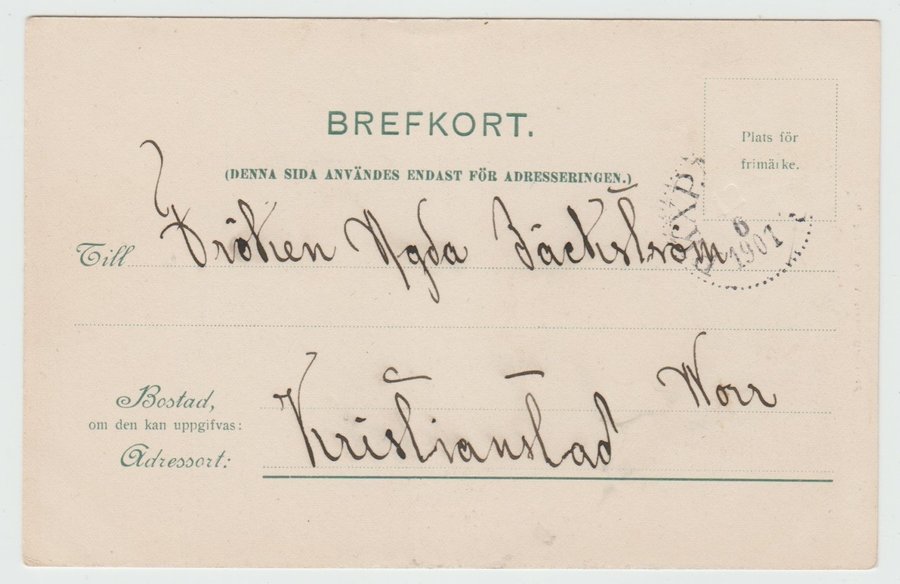 BREFKORT.
(DENNA SIDA ANVÄNDES ENDAST FÖR ADRESSERINGEN.)
Plats för
frimärke.
PKXP.
6
1901
Till Fröken Agda Bäckström
Norr
Bostad,
om den kan uppgifvas:
Kristianstad
Adressort: